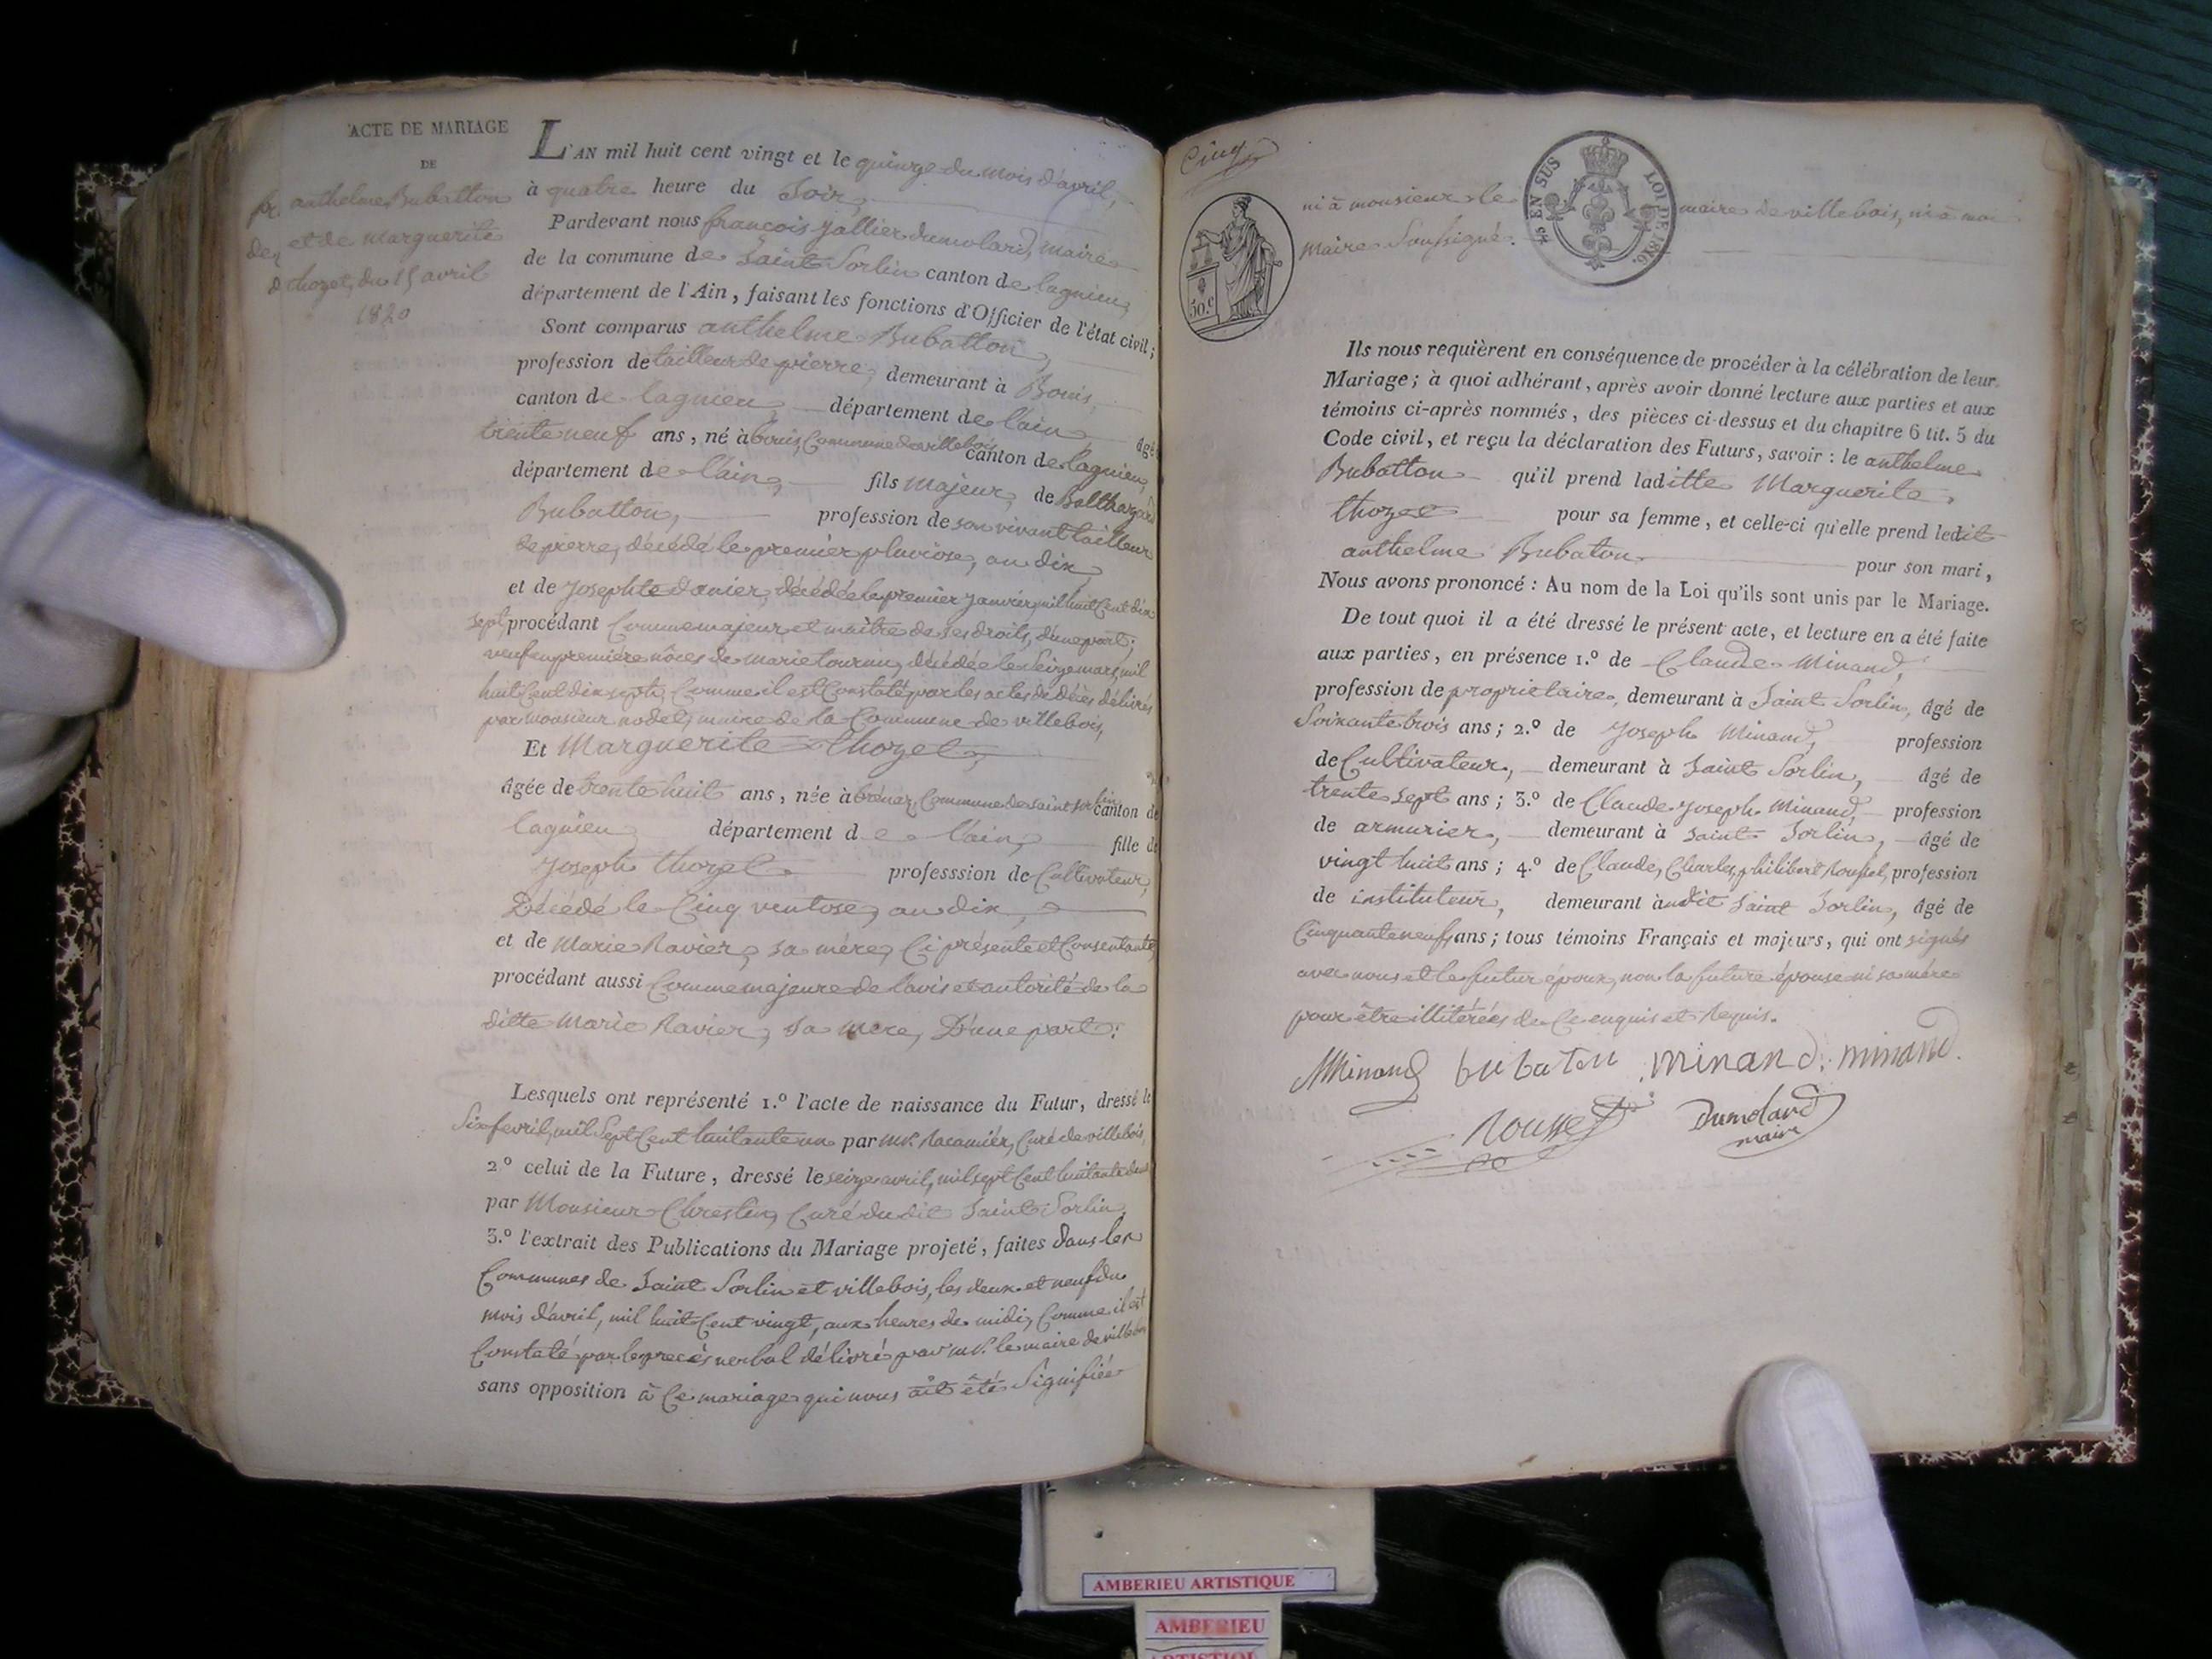 ACTE DE MARIAGE
DE
anthelme Bubatton
et de marguerite
thozet, du 15 avril
1820
L'AN mil huit cent vingt et le quinze du mois d'avril,
à quatre heure du Soir,
Pardevant nous françois jallier dumolard, maire
de la commune de Saint Sorlin canton de lagnieu,
département de l'Ain, faisant les fonctions d'Officier de l'état civil;
Sont comparus anthelme Bubatton,
profession de tailleur de pierre, demeurant à Bouis,
canton de lagnieu département de l'ain, âgé
trente neuf ans, né à bouis, Commune de villebois canton de lagnieu,
département de l'ain, fils majeur, de Balthazard
Bubatton, profession de son vivant tailleur
de pierre, décédé le premier pluviose, an dix,
et de Josephte danier, décédée le premier janvier mil huit Cent dix
sept, procédant Comme majeur et maître de ses droits, d'une part;
veuf en première nôces de marie tournu, décédée le Seize mars, mil
huit Cent dix sept, Comme il est Constaté par les actes de décès délivrés
par monsieur nodet, maire de la Commune de villebois,
Et Marguerite thozet,
âgée de trente huit ans, née à brénaz, Commune de saint sorlin canton de
lagnieu, département de l'ain, fille de
Joseph thozet professsion de Cultivateur,
Décédé le Cinq ventose, an dix,
et de Marie Ravier, sa mère, Ci présente et Consentante,
procédant aussi Comme majeure de l'avis et autorité de la
ditte Marie Ravier, sa mere, D'une part:
Lesquels ont représenté 1.º l'acte de naissance du Futur, dressé le
Six fevril, mil Sept Cent huitante un par mr. Racamier, Curé de villebois,
2.º celui de la Future, dressé le seize avril, mil sept Cent huitante deux
par Monsieur Chrestin, Curé du dit Saint Sorlin,
3.º l'extrait des Publications du Mariage projeté, faites dans les
Communes de Saint Sorlin et villebois, les deux et neuf du
mois d'avril, mil huit Cent vingt, aux heures de midi, Comme il est
Constaté par le procès verbal délivré par mr. le maire de villebois
sans opposition à Ce mariage qui nous ait été Signifiée
Cinq
50.c
EN SUS
LOI DE 1816.
ni à monsieur le maire de villebois, ni à moi
maire Soussigné.
Ils nous requièrent en conséquence de procéder à la célébration de leur
Mariage; à quoi adhérant, après avoir donné lecture aux parties et aux
témoins ci-après nommés, des pièces ci-dessus et du chapitre 6 tit. 5 du
Code civil, et reçu la déclaration des Futurs, savoir: le anthelme
Bubatton qu'il prend laditte Marguerite
thozet pour sa femme, et celle-ci qu'elle prend ledit
anthelme Bubaton pour son mari,
Nous avons prononcé: Au nom de la Loi qu'ils sont unis par le Mariage.
De tout quoi il a été dressé le présent acte, et lecture en a été faite
aux parties, en présence 1.º de Claude Minand,
profession de propriétaire, demeurant à Saint Sorlin, âgé de
Soixante trois ans; 2.º de Joseph Minand, profession
de Cultivateur, demeurant à Saint Sorlin, âgé de
trente sept ans; 3.º de Claude Joseph Minand, profession
de armurier, demeurant à Saint Sorlin, âgé de
vingt huit ans; 4.º de Claude, Charles, philibert Rousset, profession
de instituteur, demeurant audit Saint Sorlin, âgé de
Cinquante neuf ans; tous témoins Français et majeurs, qui ont signés
avec nous et le futur époux, non la future épouse ni sa mère
pour être illitérées de Ce enquis et Requis.
Minand bubaton minand minand
Rousset Dumolard
maire
AMBERIEU ARTISTIQUE
AMBERIEU
ARTISTIQUE